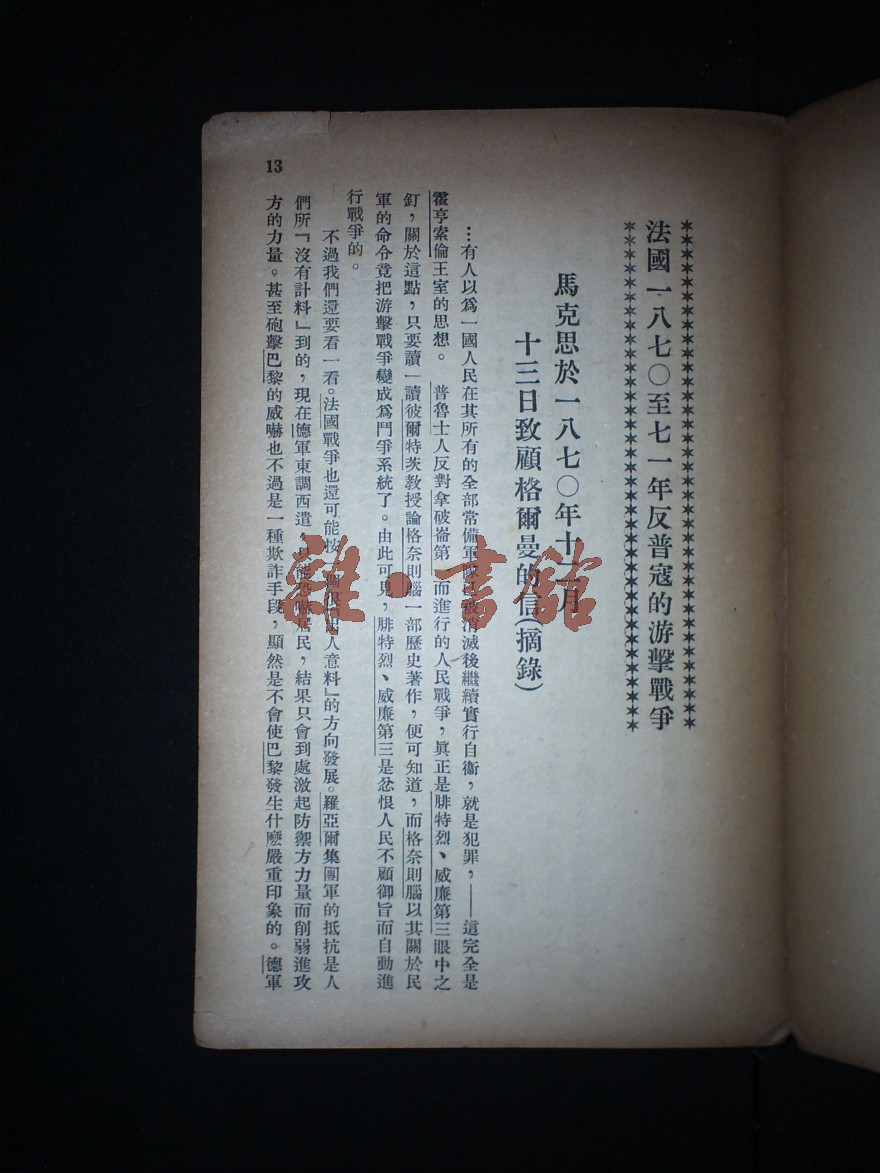 法國一八七〇至七一年反普寇的游擊戰爭
馬克思於一八七〇年十二月
十三日致顧格爾曼的信（摘錄）
…有人以爲一國人民在其所有的全部常備軍隊已被消滅後繼續實行自衞，就是犯罪，——這完全是
霍亨索倫王室的思想。普魯士人反對拿破崙第一而進行的人民戰爭，眞正是腓特烈、威廉第三眼中之
釘，關於這點，只要讀一讀彼爾特茨敎授論格奈則腦一部歷史著作，便可知道，而格奈則腦以其關於民
軍的命令竟把游擊戰爭變成爲鬥爭系統了。由此可見，腓特烈、威廉第三是忿恨人民不顧御旨而自動進
行戰爭的。
不過我們還要看一看。法國戰爭也還可能按一個很『出人意料』的方向發展。羅亞爾集團軍的抵抗是人
們所『沒有計料』到的，現在德軍東調西遣，只能恐嚇居民，結果只會到處激起防禦方力量而削弱進攻
方的力量。甚至砲擊巴黎的威嚇也不過是一種欺詐手段，顯然是不會使巴黎發生什麽嚴重印象的。德軍
13
雜·書館